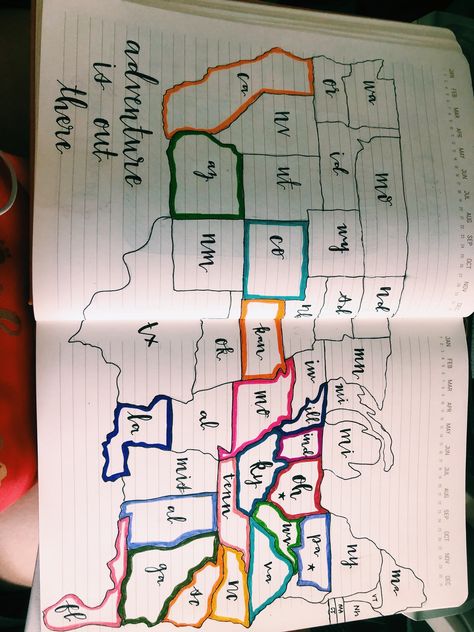 JAN FEB MAR APR MAY JUN JUL AUG SEP OCT NOV DEC
JAN FEB MAR APR MAY JUN JUL AUG SEP OCT NOV DEC
wa
mo
nd
mn
mi
ny
ma
VT
NH
or
id
wy
sd
wi
iw
ill
ind
oh
pa
nv
ut
co
kan
mo
ky
wv
va
ca
az
nm
ok
al
tenn
nc
sc
tx
la
mis
al
ga
fl
adventure
is out
there